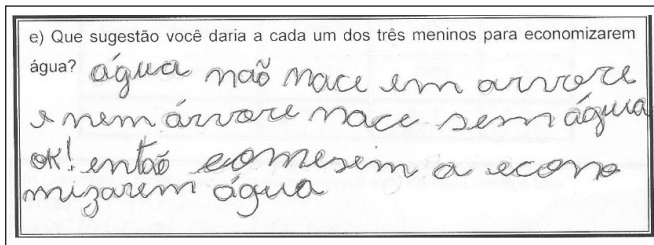 e) Que sugestão você daria a cada um dos três meninos para economizarem
água? água não nace em arvore
e nem árvore nace sem água
OK! então comesem a econo
mizarem água